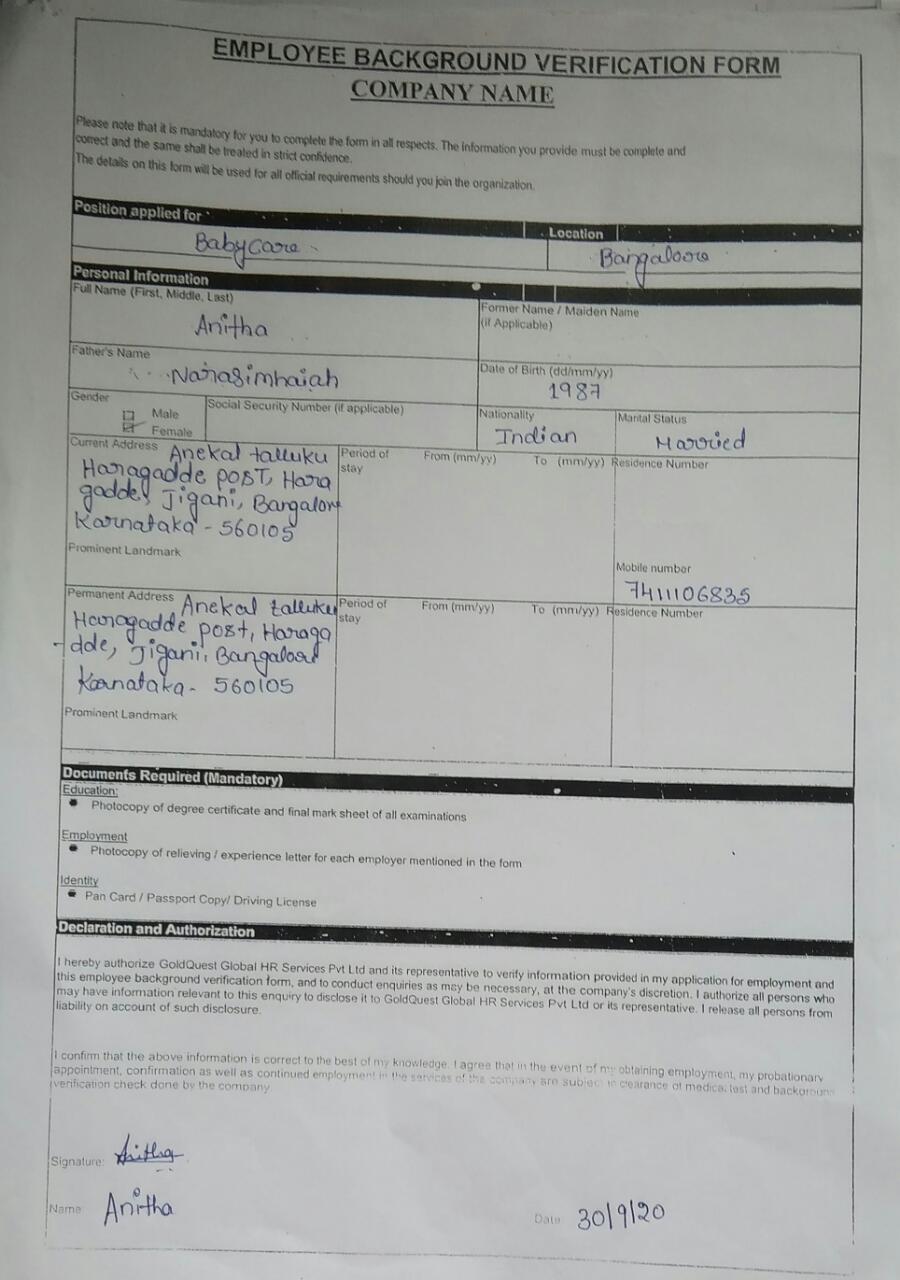 EMPLOYEE BACKGROUND VERIFICATION FORM
COMPANY NAME
Please note that it is mandatory for you to complete the form in all respects. The information you provide must be complete and
correct and the same shall be treated in strict confidence.
The details on this form will be used for all official requirements should you join the organization.
Position applied for
Location
Babycare
Bangaloore
Personal Information
Full Name (First, Middle, Last)
Anitha
Former Name / Maiden Name
(if Applicable)
Father's Name
Narasimhaiah
Date of Birth (dd/mm/yy)
1987
Gender
Male
Female
Social Security Number (if applicable)
Nationality
Indian
Marital Status
Married
Current Address Anekal talluku
Haragadde post, Hara
gadde, Jigani, Bangalore
Karnataka - 560105
Prominent Landmark
Period of
stay
From (mm/yy) To (mm/yy)
Residence Number
Mobile number
7411106835
Permanent Address Anekal talluku
Haragadde post, Haraga
dde, Jigani, Bangalore
Karnataka - 560105
Prominent Landmark
Period of
stay
From (mm/yy) To (mm/yy)
Residence Number
Documents Required (Mandatory)
Education:
Photocopy of degree certificate and final mark sheet of all examinations
Employment
Photocopy of relieving / experience letter for each employer mentioned in the form
Identity
Pan Card / Passport Copy/ Driving License
Declaration and Authorization
I hereby authorize GoldQuest Global HR Services Pvt Ltd and its representative to verify information provided in my application for employment and
this employee background verification form, and to conduct enquiries as may be necessary, at the company's discretion. I authorize all persons who
may have information relevant to this enquiry to disclose it to GoldQuest Global HR Services Pvt Ltd or its representative. I release all persons from
liability on account of such disclosure.
I confirm that the above information is correct to the best of my knowledge. I agree that in the event of my obtaining employment, my probationary
appointment, confirmation as well as continued employment in the services of the company are subject to clearance of medical test and background
verification check done by the company.
Signature: Anitha
Name Anitha
Date 30/9/20